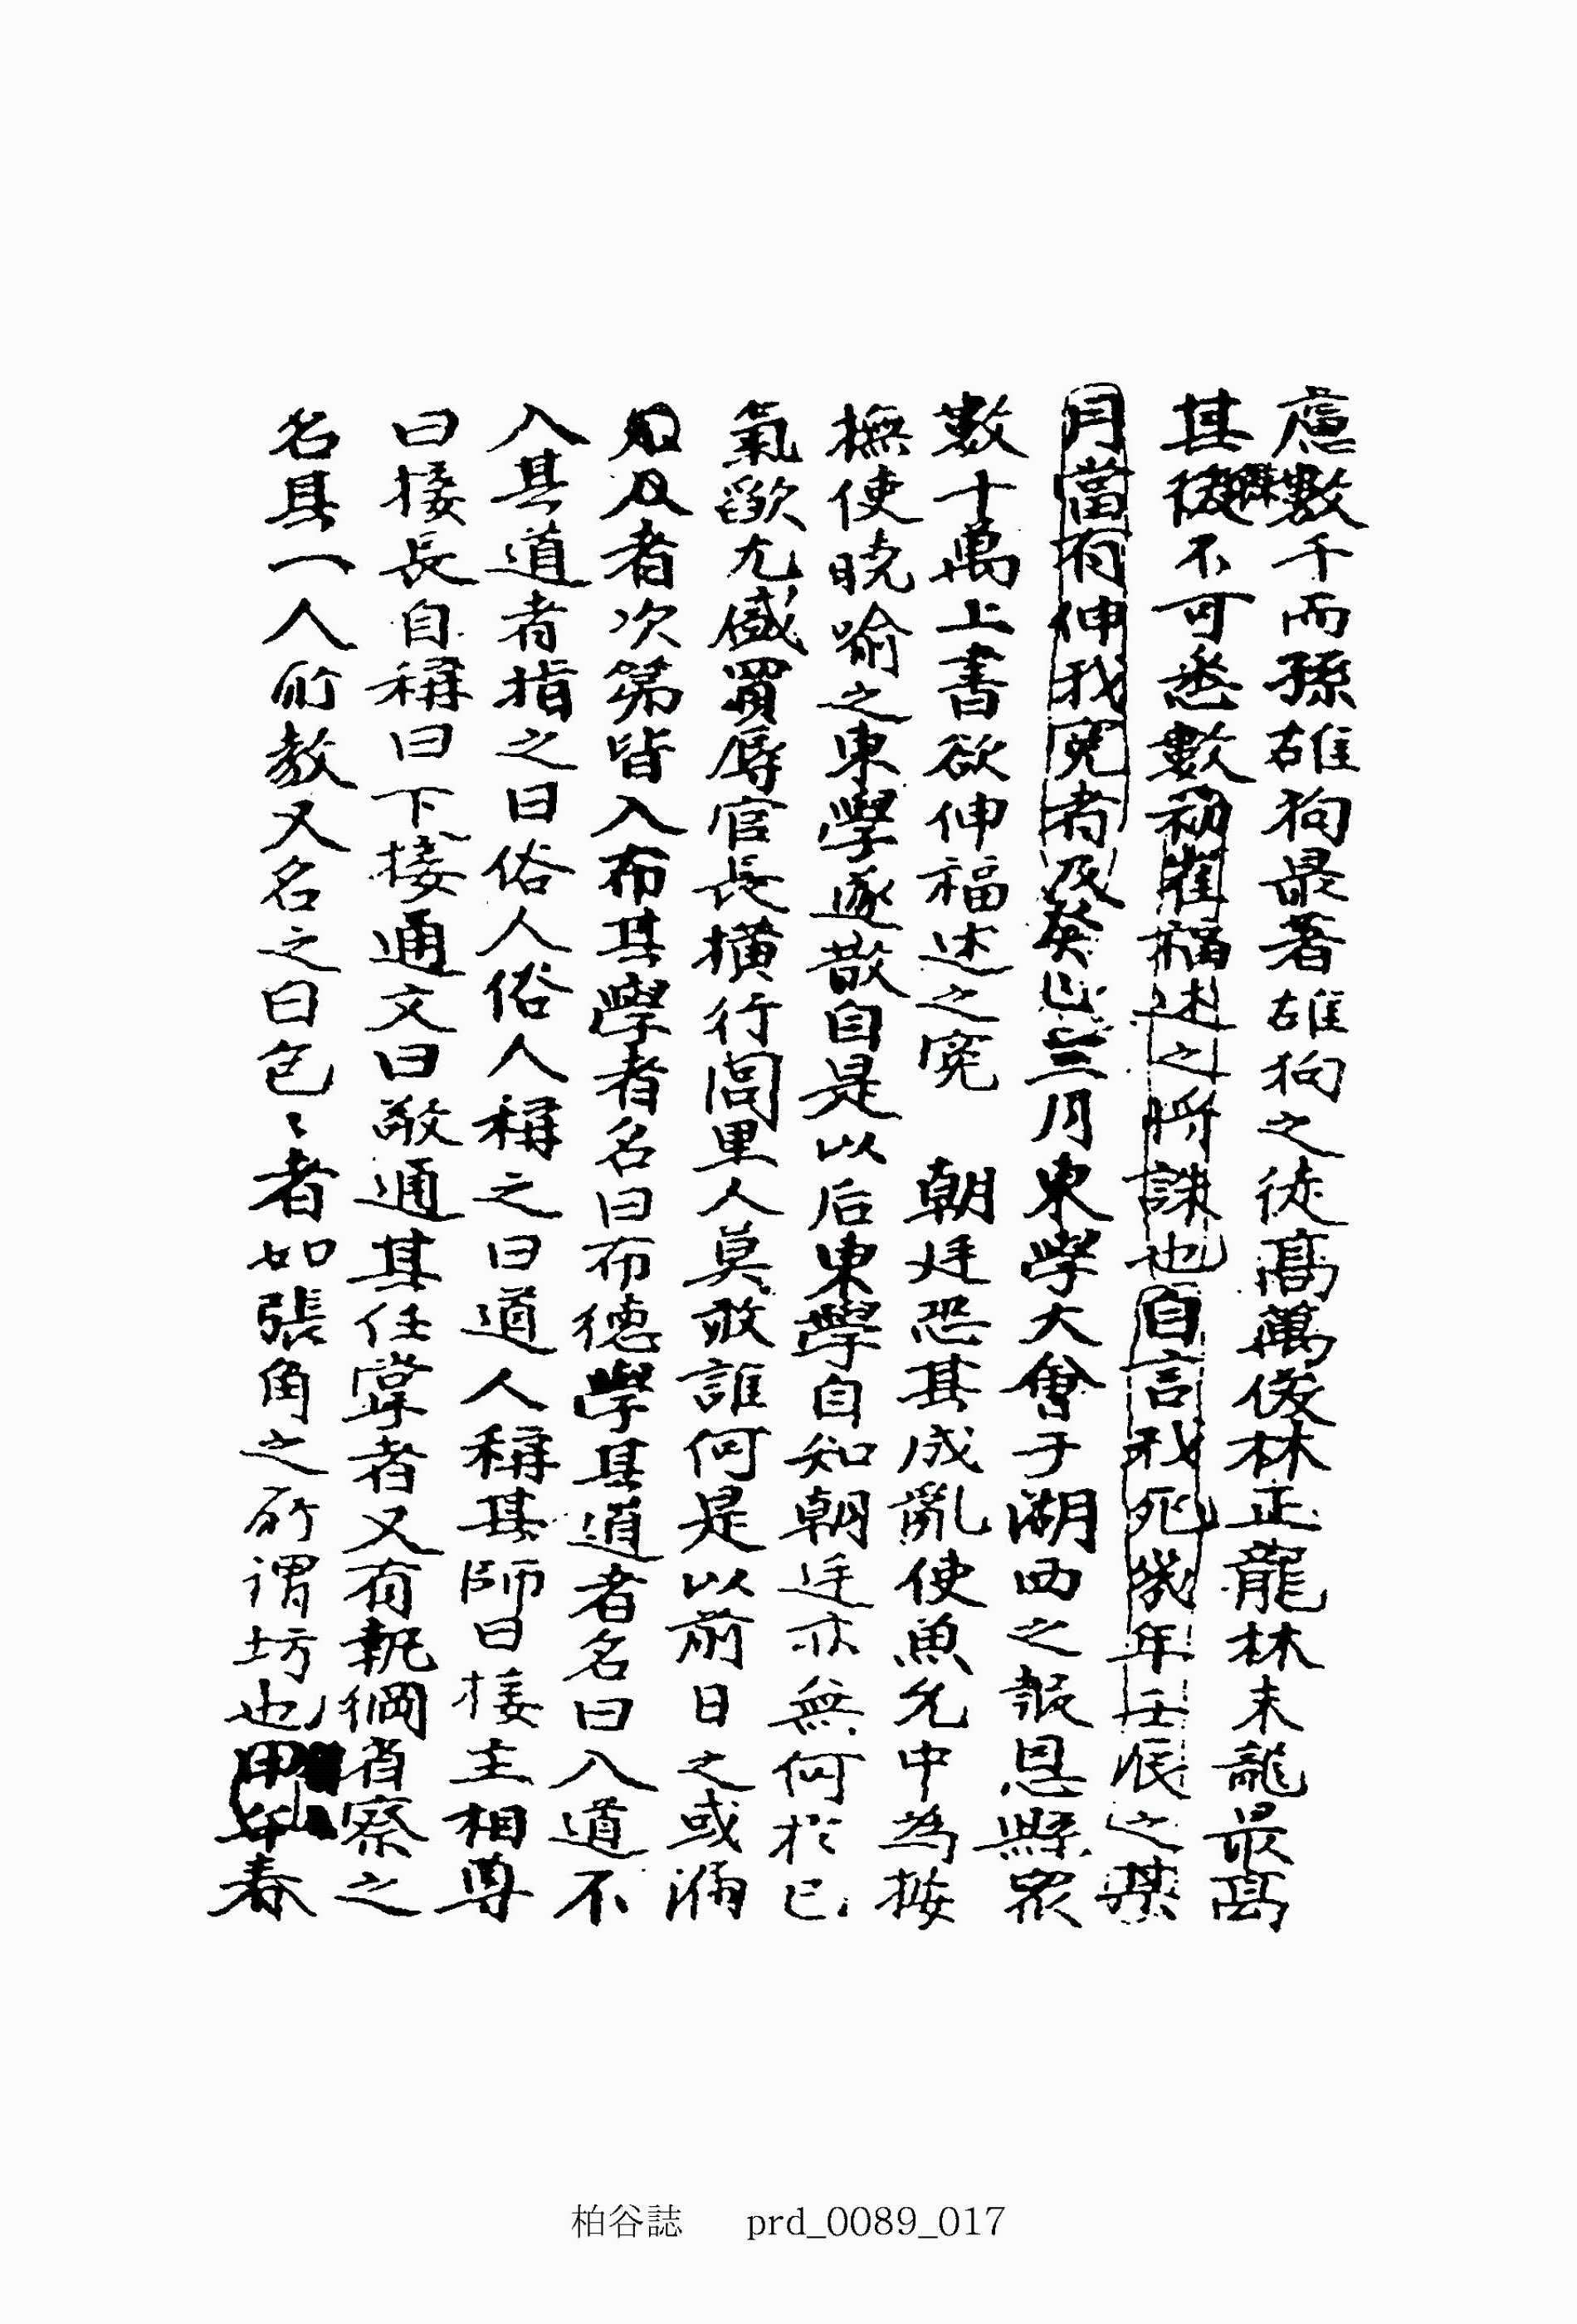 慮數千而孫雄狗最著雄狗之徒高萬俊林正龍林末龍最高
其後不可悉數初崔福述之將誅也自言我死幾年壬辰之某
月當有伸我寃者及癸巳三月東學大會于湖西之報恩縣衆
數十萬上書欲伸福述之寃 朝廷恐其成亂使魚允中爲按
撫使曉喻之東學遂散自是以后東學自知朝廷亦無何於己
氣歛尤盛詈辱官長橫行閭里人莫敢誰何是以前日之或
人者次第皆入布其學者名曰布德學其道者名曰入道不
入其道者指之曰俗人俗人稱之曰道人稱其師曰接主相尊
曰接長自稱曰下接通文曰敬通其任掌者又有執綱省察之
名具一人所教又名之曰包〻者如張角之所謂坊也甲午春
柏谷誌 prd_0089_017